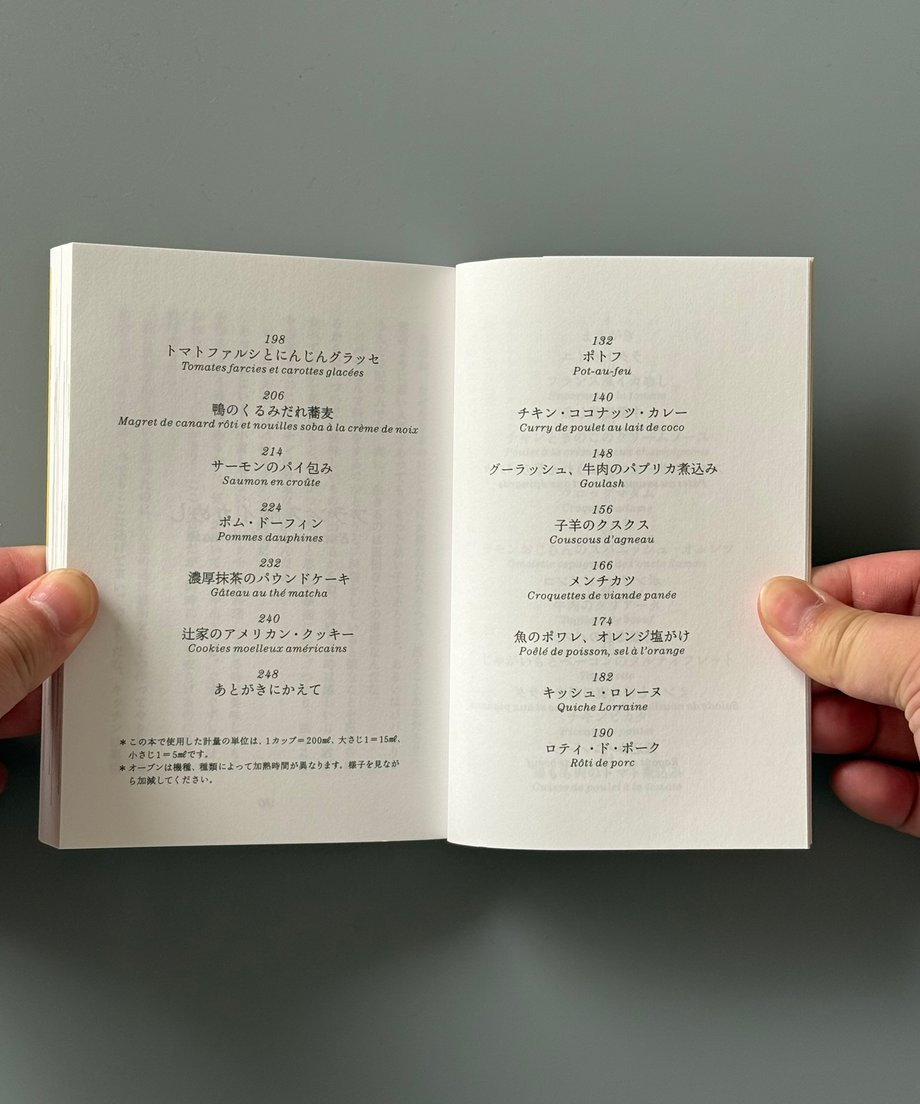 132
ポトフ
Pot-au-feu
140
チキン・ココナッツ・カレー
Curry de poulet au lait de coco
148
グーラッシュ、牛肉のパプリカ煮込み
Goulash
156
子羊のクスクス
Couscous d'agneau
166
メンチカツ
Croquettes de viande panée
174
魚のポワレ、オレンジ塩がけ
Poêlé de poisson, sel à l'orange
182
キッシュ・ロレーヌ
Quiche Lorraine
190
ロティ・ド・ポーク
Rôti de porc
198
トマトファルシとにんじんグラッセ
Tomates farcies et carottes glacées
206
鴨のくるみだれ蕎麦
Magret de canard rôti et nouilles soba à la crème de noix
214
サーモンのパイ包み
Saumon en croûte
224
ポム・ドーフィン
Pommes dauphines
232
濃厚抹茶のパウンドケーキ
Gâteau au thé matcha
240
辻家のアメリカン・クッキー
Cookies moelleux américains
248
あとがきにかえて
＊この本で使用した計量の単位は、1カップ＝200㎖、大さじ1＝15㎖、
小さじ1＝5㎖です。
＊オーブンは機種、種類によって加熱時間が異なります。様子を見なが
ら加減してください。